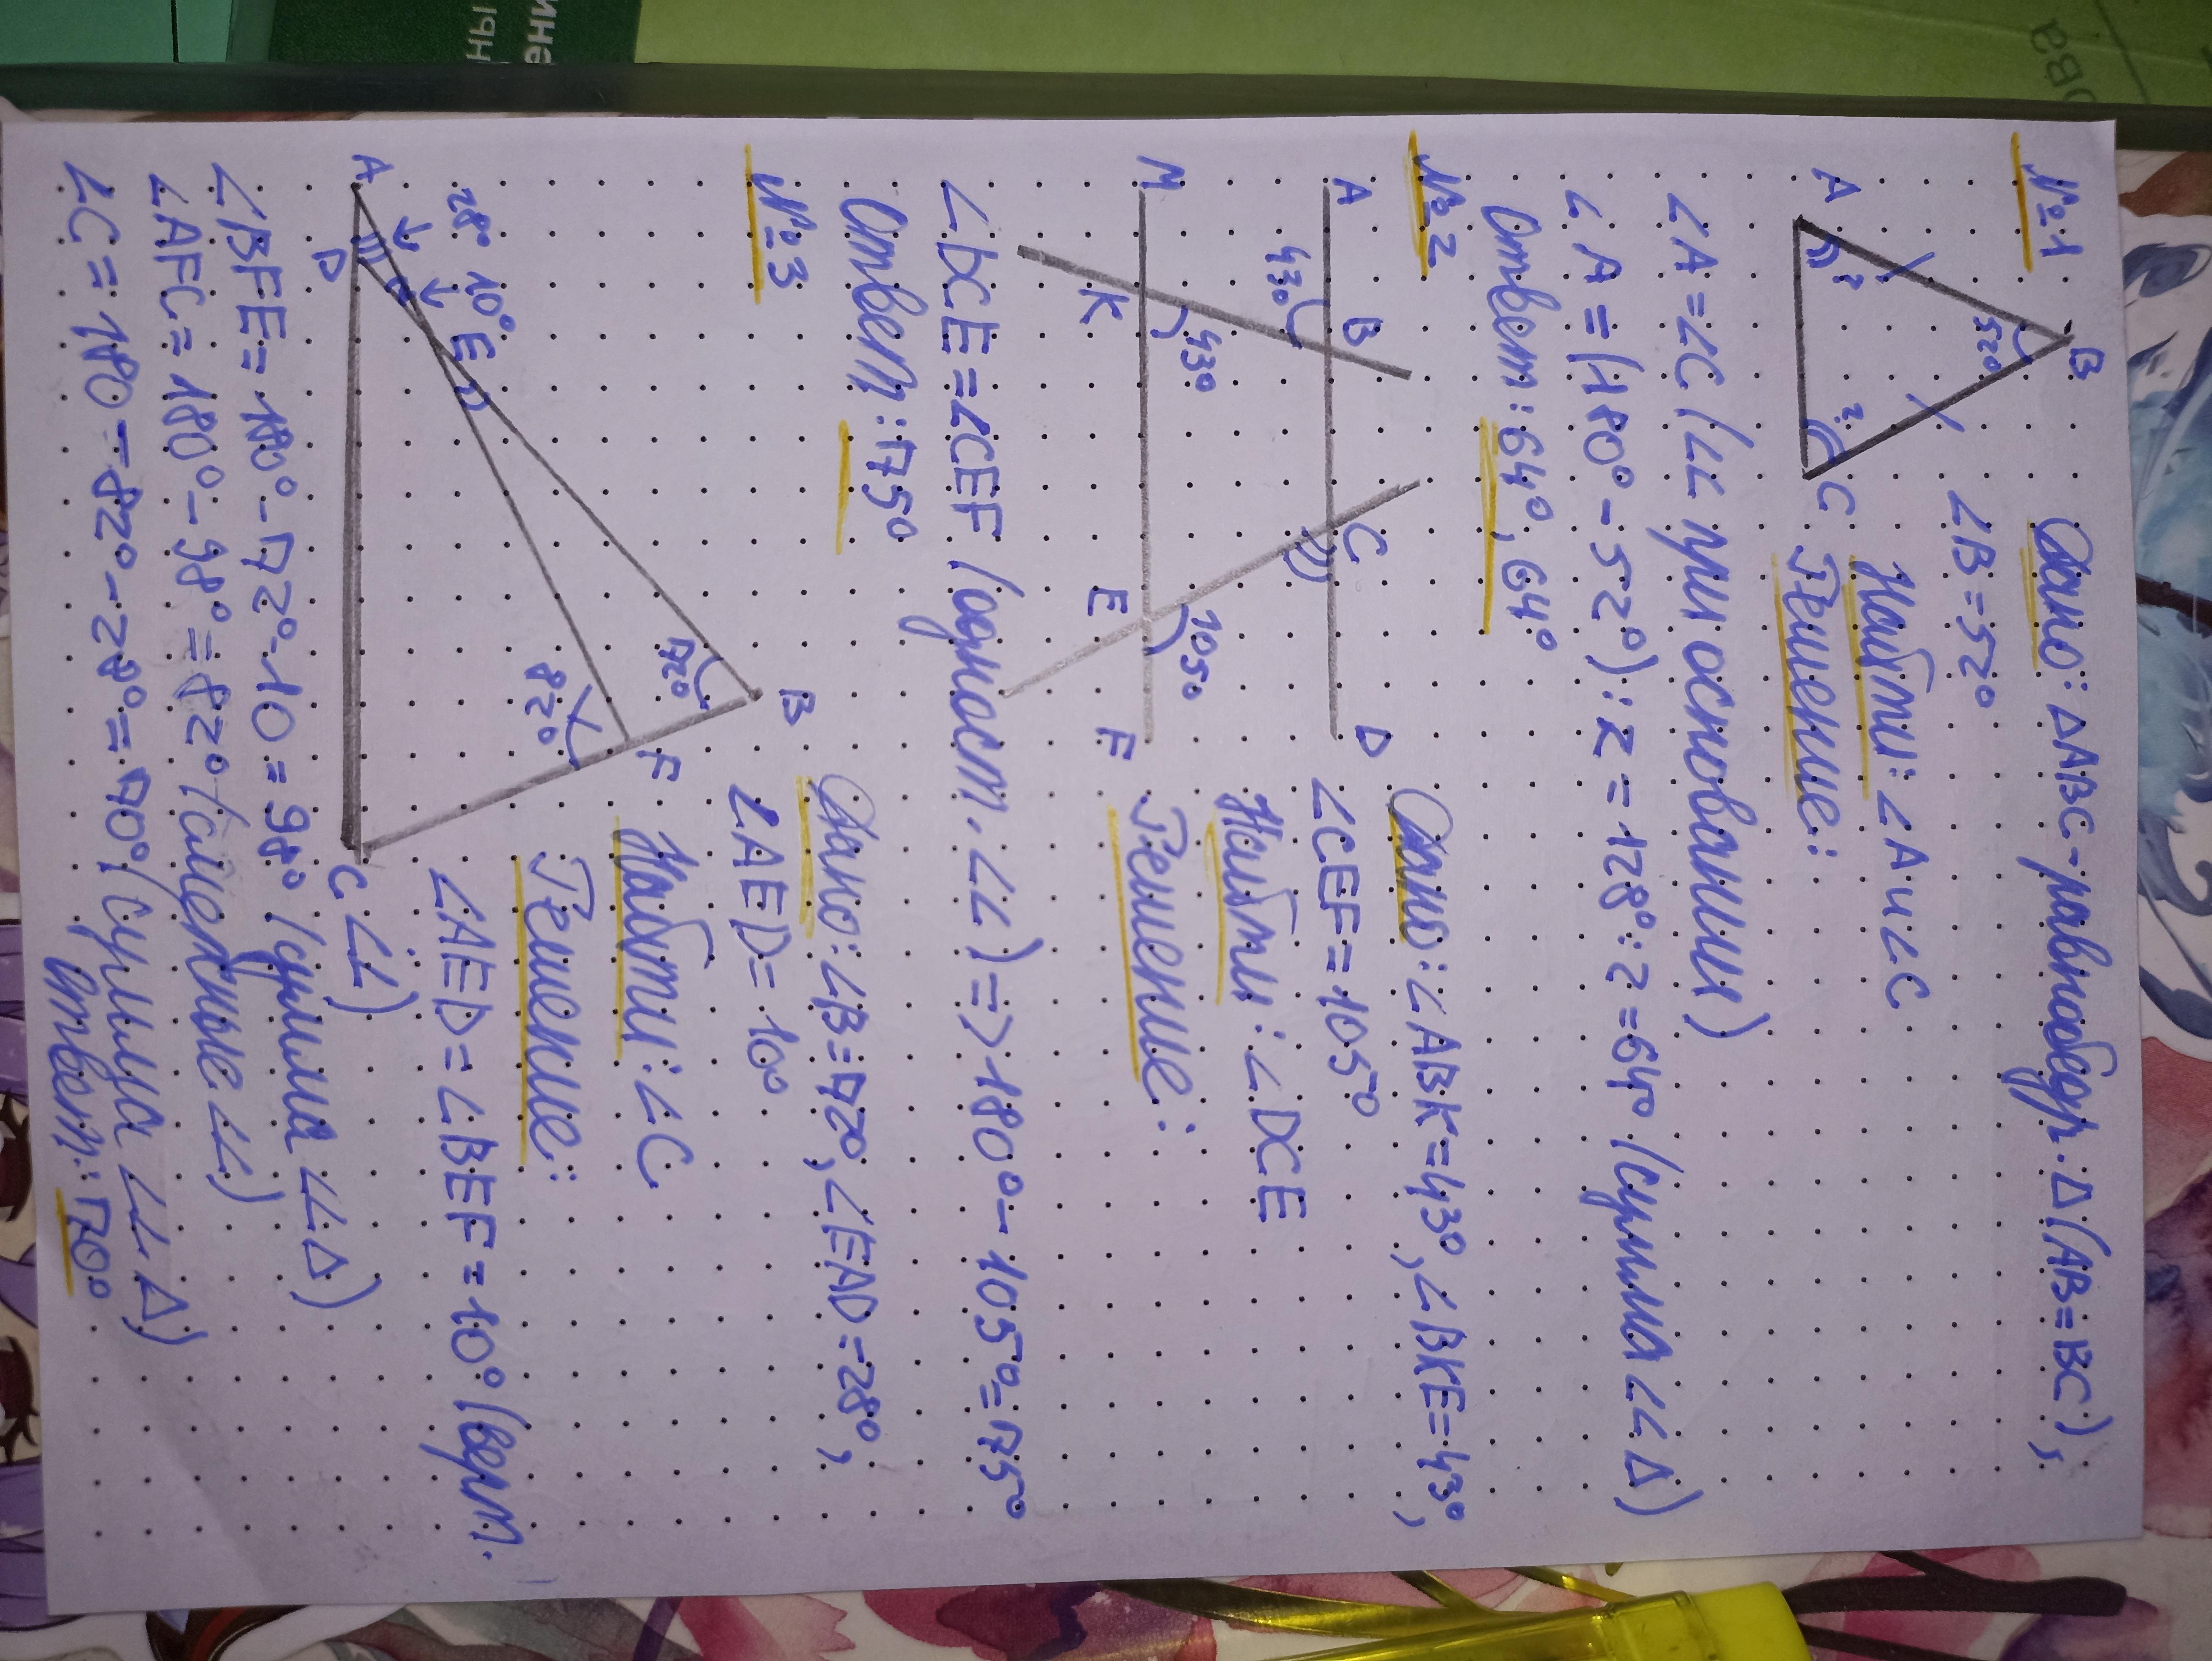 №1
Дано: ΔABC-равнобедр. Δ (AB=BC),
∠B=52°
Найти: ∠A и ∠C
Решение:
B
52°
A
?
?
C
∠A=∠C (∠∠ при основании)
∠A=(180°-52°):2=128°:2=64° (сумма ∠∠ Δ)
Ответ: 64°, 64°
№2
Дано: ∠ABK=43°, ∠BKE=43°,
∠CEF=105°
Найти: ∠DCE
Решение:
A
B
C
D
43°
43°
105°
M
K
E
F
∠DCE=∠CEF (одност. ∠∠) => 180°-105°=75°
Ответ: 75°
№3
Дано: ∠B=72°, ∠EAD=28°,
∠AED=10°
Найти: ∠C
Решение:
∠AED=∠BEF=10° (верт.
∠∠)
B
72°
F
82°
28°
10°
E
A
D
C
∠BFE=180°-72°-10=98° (сумма ∠∠ Δ)
∠AFC=180°-98°=82° (смежные ∠∠)
∠C=180-82°-28°=70° (сумма ∠∠ Δ)
Ответ: 70°
ины
ова